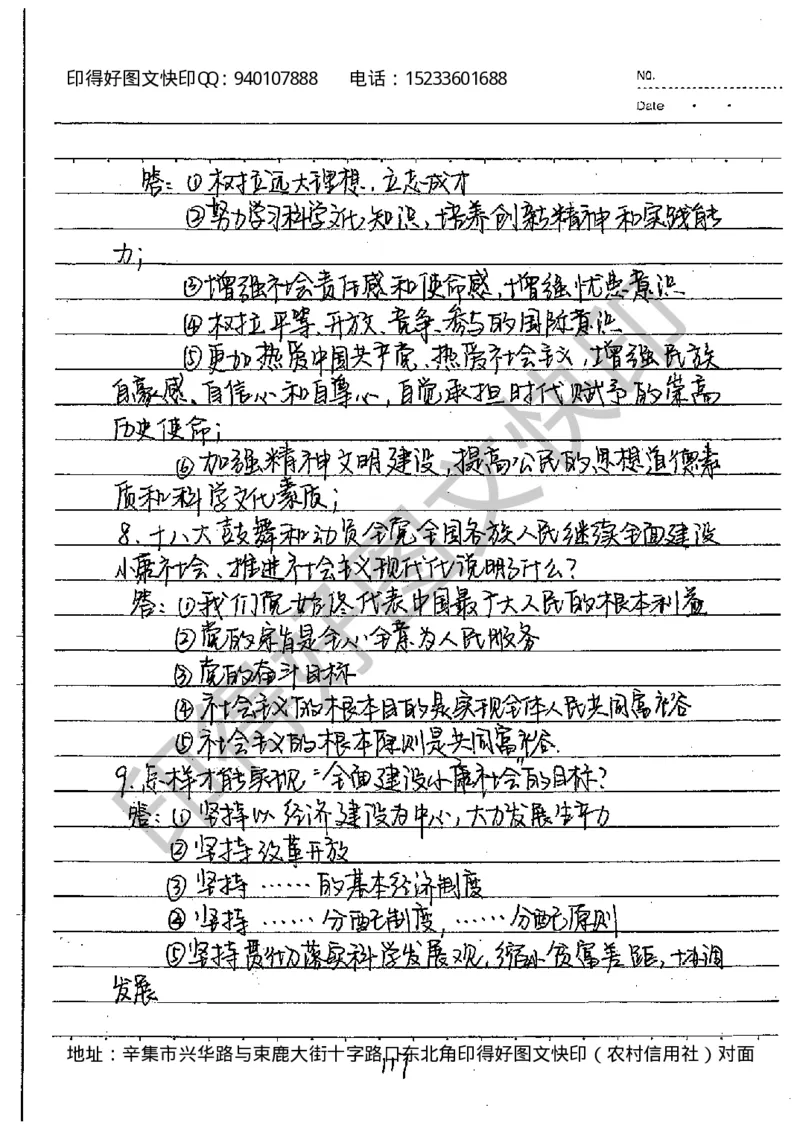 印得好图文快印QQ：940107888 电话：15233601688
No.
Date
答：①树立远大理想，立志成才
②努力学习科学文化知识，培养创新精神和实践能
力；
③增强社会责任感和使命感，增强忧患意识
④树立平等、开放、竞争、参与的国际意识
⑤更加热爱中国共产党、热爱社会主义，增强民族
自豪感、自信心和自尊心，自觉承担时代赋予的崇高
历史使命；
⑥加强精神文明建设，提高公民的思想道德素
质和科学文化素质；
8.十八大鼓舞和动员全党全国各族人民继续全面建设
小康社会、推进社会主义现代化说明了什么？
答：①我们党始终代表中国最广大人民的根本利益
②党的宗旨是全心全意为人民服务
③党的奋斗目标
④社会主义的根本目的是实现全体人民共同富裕
⑤社会主义的根本原则是共同富裕.
9.怎样才能实现“全面建设小康社会”的目标？
答：①坚持以经济建设为中心，大力发展生产力
②坚持改革开放
③坚持……的基本经济制度
④坚持……分配制度，……分配原则
⑤坚持贯彻落实科学发展观，缩小贫富差距，协调
发展
地址：辛集市兴华路与束鹿大街十字路口东北角印得好图文快印（农村信用社）对面
印得好图文快印